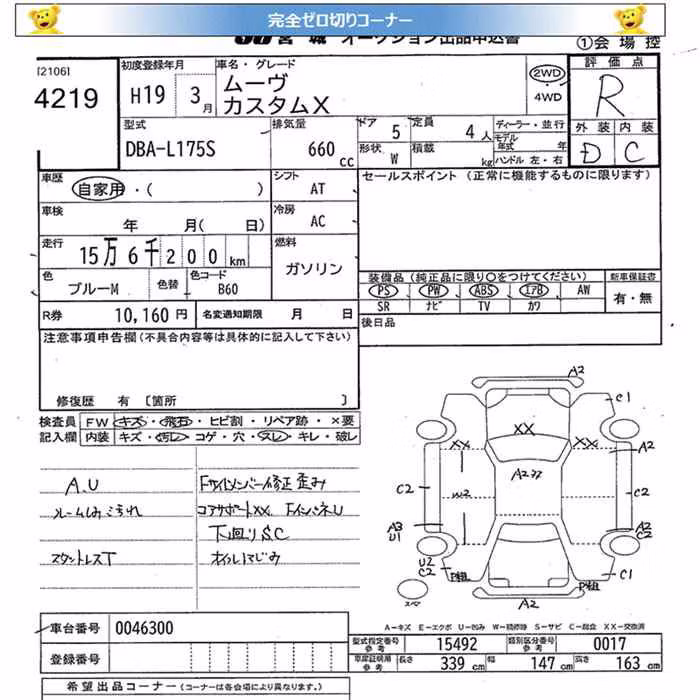 完全ゼロ切りコーナー
JU宮城 オークション出品申込書
①会場控
[2106]
4219
初度登録年月
H19 3月
車名・グレード
ムーヴ
カスタムX
2WD
4WD
評価点
R
外装 内装
D C
型式
DBA-L175S
排気量
660 cc
ドア 5
定員 4人
形状 W
積載 kg
ディーラー・並行
モデル年式 年
ハンドル 左・右
車歴
自家用・( )
シフト AT
セールスポイント (正常に機能するものに限ります)
車検
年 月( 日)
冷房 AC
走行
15万6千200km
燃料
ガソリン
色
ブルーM
色替
色コード
B60
装備品(純正品に限り○をつけてください)
PS PW ABS エアB AW
SR ナビ TV カワ
新車保証書
有・無
R券 10,160円
名変通知期限 月 日
後日品
注意事項申告欄(不具合内容等は具体的に記入して下さい)
修復歴 有 [箇所 ]
検査員
記入欄
FW キズ・飛石・ヒビ割・リペア跡・×要
内装 キズ・汚レ・コゲ・穴・スレ・キレ・破レ
A.U
ルームしみ汚れ
スタットレスT
Fサイドメンバー修正 歪み
コアサポートXX. FインパネU
下回りS.C
オイルにじみ
A2
C1
XX
XX
XX
A2
A2
C2
W2
C2
A3
U1
A2
C2
U2
C2
P粗
P粗
C1
A2
スペア
A-キズ E-エクボ U-凹み W-補修跡 S-サビ C-腐食 XX-交換済
車台番号 0046300
登録番号
型式指定番号
参考
15492
類別区分番号
参考
0017
車庫証明用
参考
長さ 339 cm
幅 147 cm
高さ 163 cm
希望出品コーナー (コーナーは各会場により異なります。)